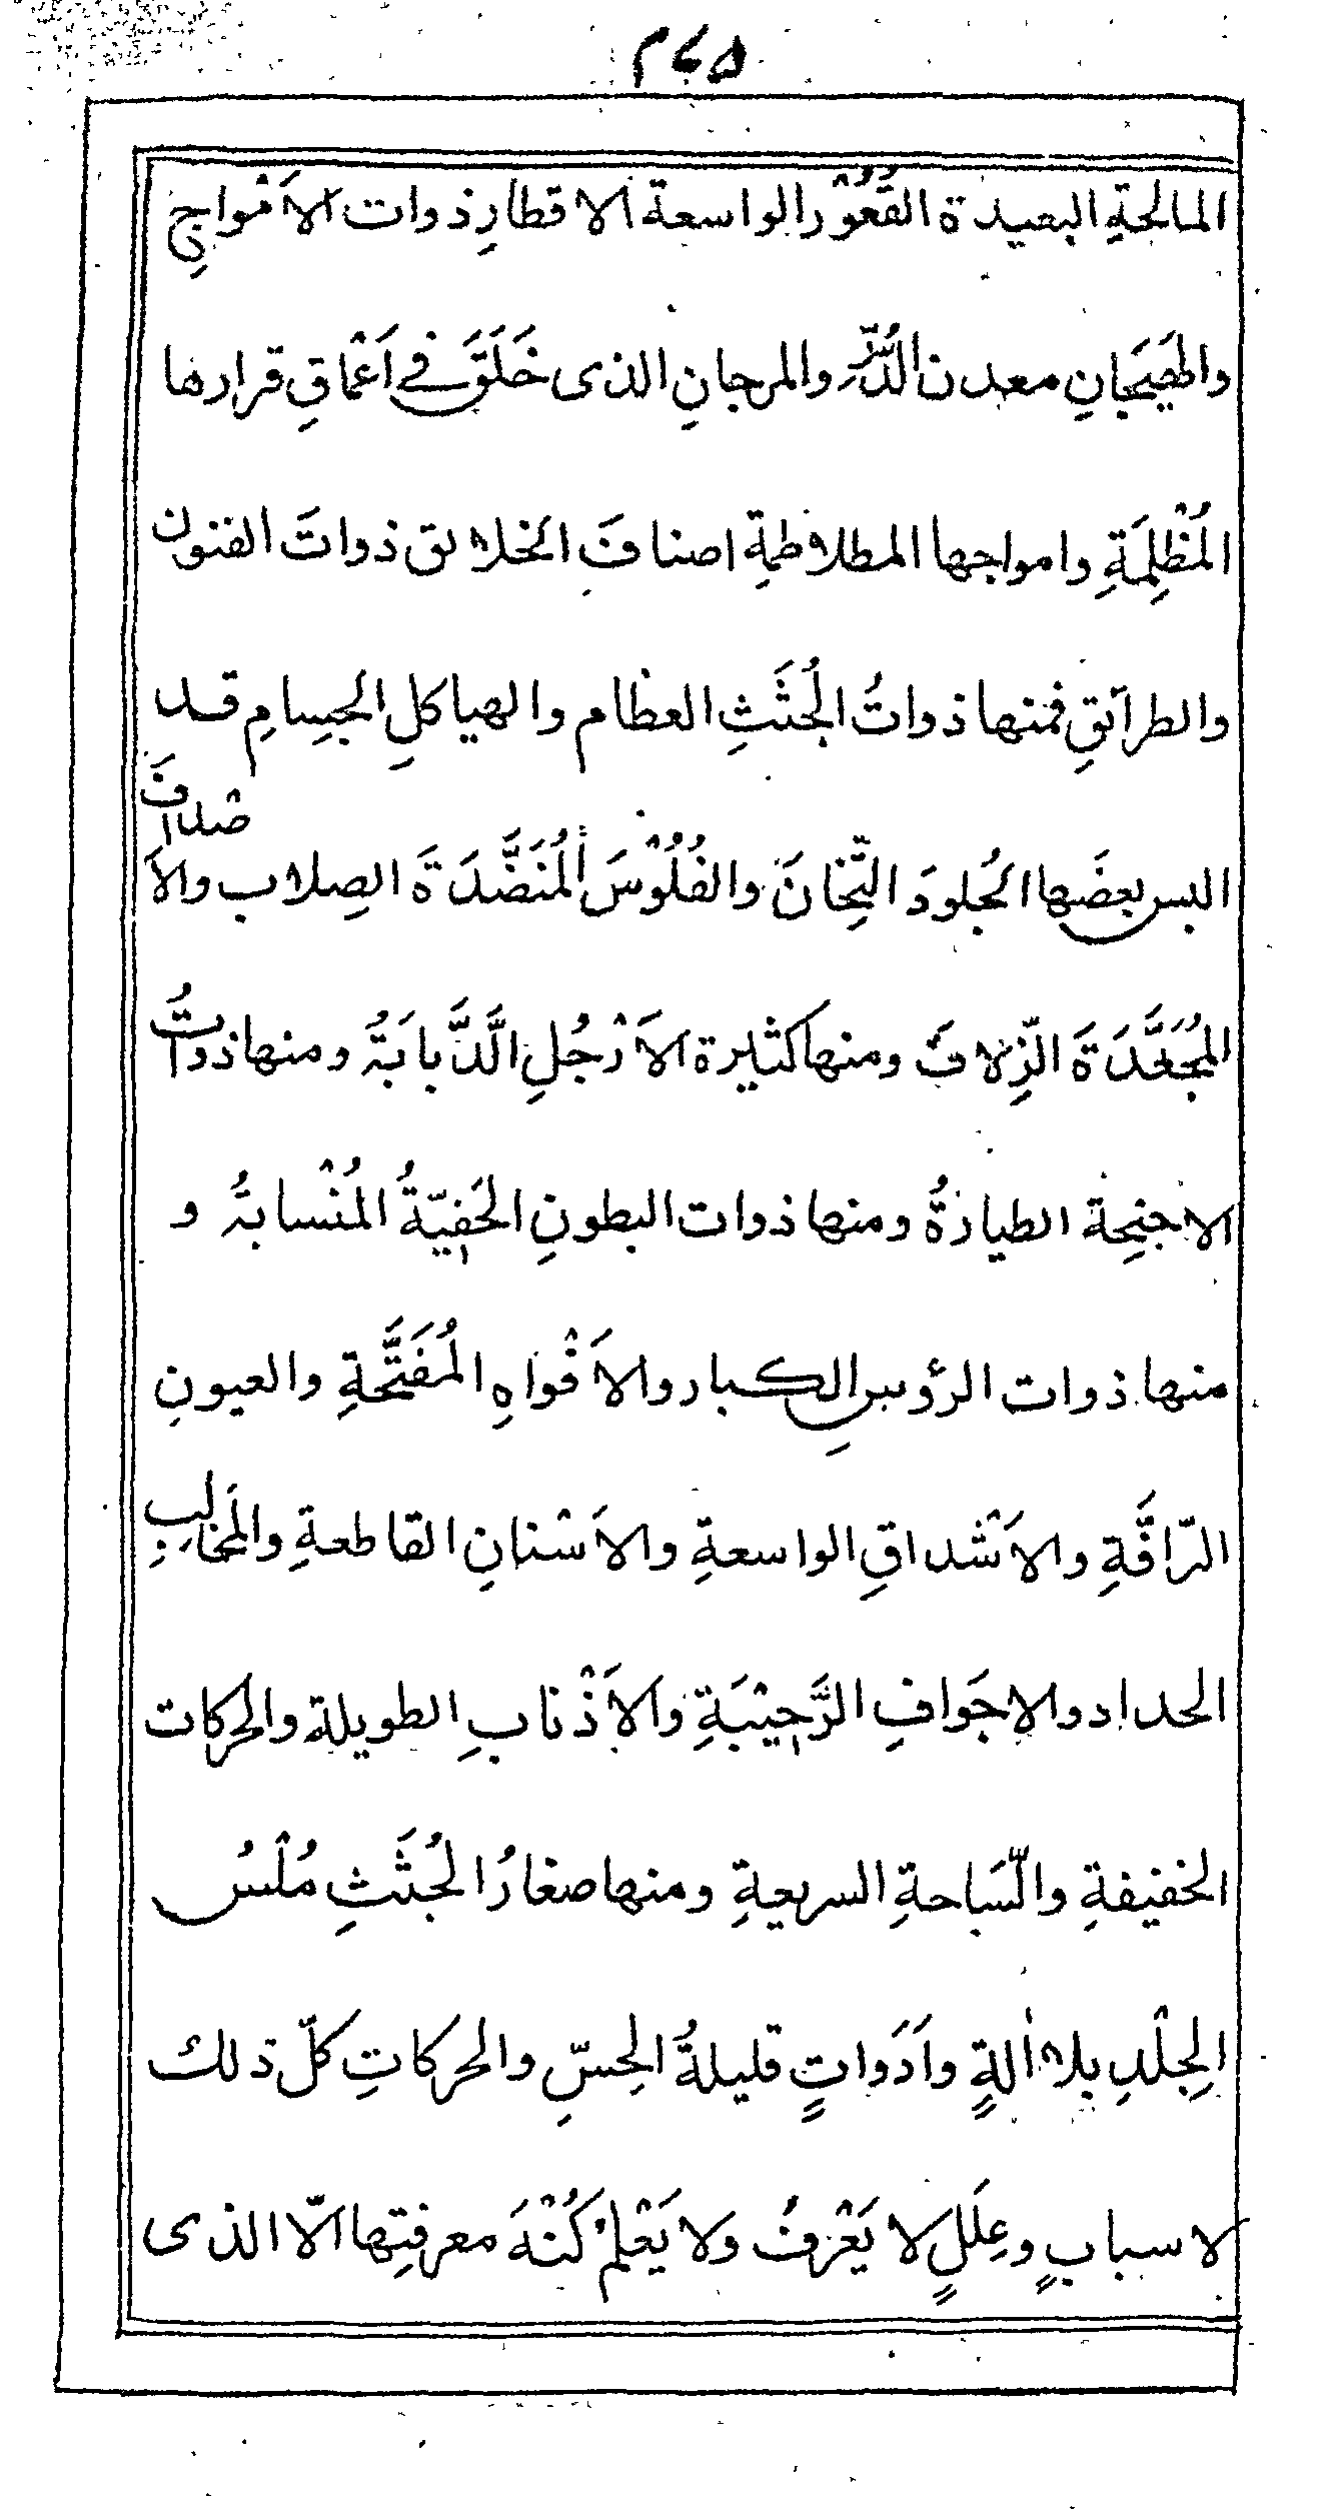 ۴۶۵
المالحةِ البعيدة القُعُوْر الواسعة الاقطارِ ذوات الاَمْواجِ
والهَيَجَانِ معدن الدُّرِّ والمرجانِ الذى خَلَقَ فے اَعْماقِ قرارها
المُظْلِمَةِ وامواجها المطلاطمةِ اصنافَ الخلائق ذواتَ الفنون
والطرآئقِ فمنها ذواتُ الجُثَثِ العظام والهياكلِ الجِسامِ قد
البس بعضَها الجُلودَ الثِّخانَ والفُلُوْسَ المُنَضَّدَةَ الصِلاب والاَصْدافَ
المُجَعَّدَةَ الزِّلافَ ومنها كثيرة الاَرْجُلِ الدَّبابَةُ ومنها ذواتُ
الاجنِحة الطيارةُ ومنها ذوات البطونِ الخَفِيّةُ المُنْسابةُ و
منها ذوات الرؤسِ الكبار والاَفْواهِ المُفَتَّحةِ والعيونِ
البرّاقَةِ والاَشْداقِ الواسعةِ والاَسْنانِ القاطعةِ والمَخالِبِ
الحداد والاجَوافِ الرَّحِيْبَةِ والاَذْنابِ الطويلة والحركات
الخفيفةِ والسّباحةِ السريعةِ ومنها صغارُ الجُثَثِ مُلْسُ
الجِلْدِ بلا اٰلةٍ واَدَواتٍ قليلةُ الحِسِّ والحركاتِ كلّ ذلك
لاسبابٍ وعِلَلٍ لا يَعْرفُ ولا يَعْلمُ كُنْهَ معرفتِها الّا الذى